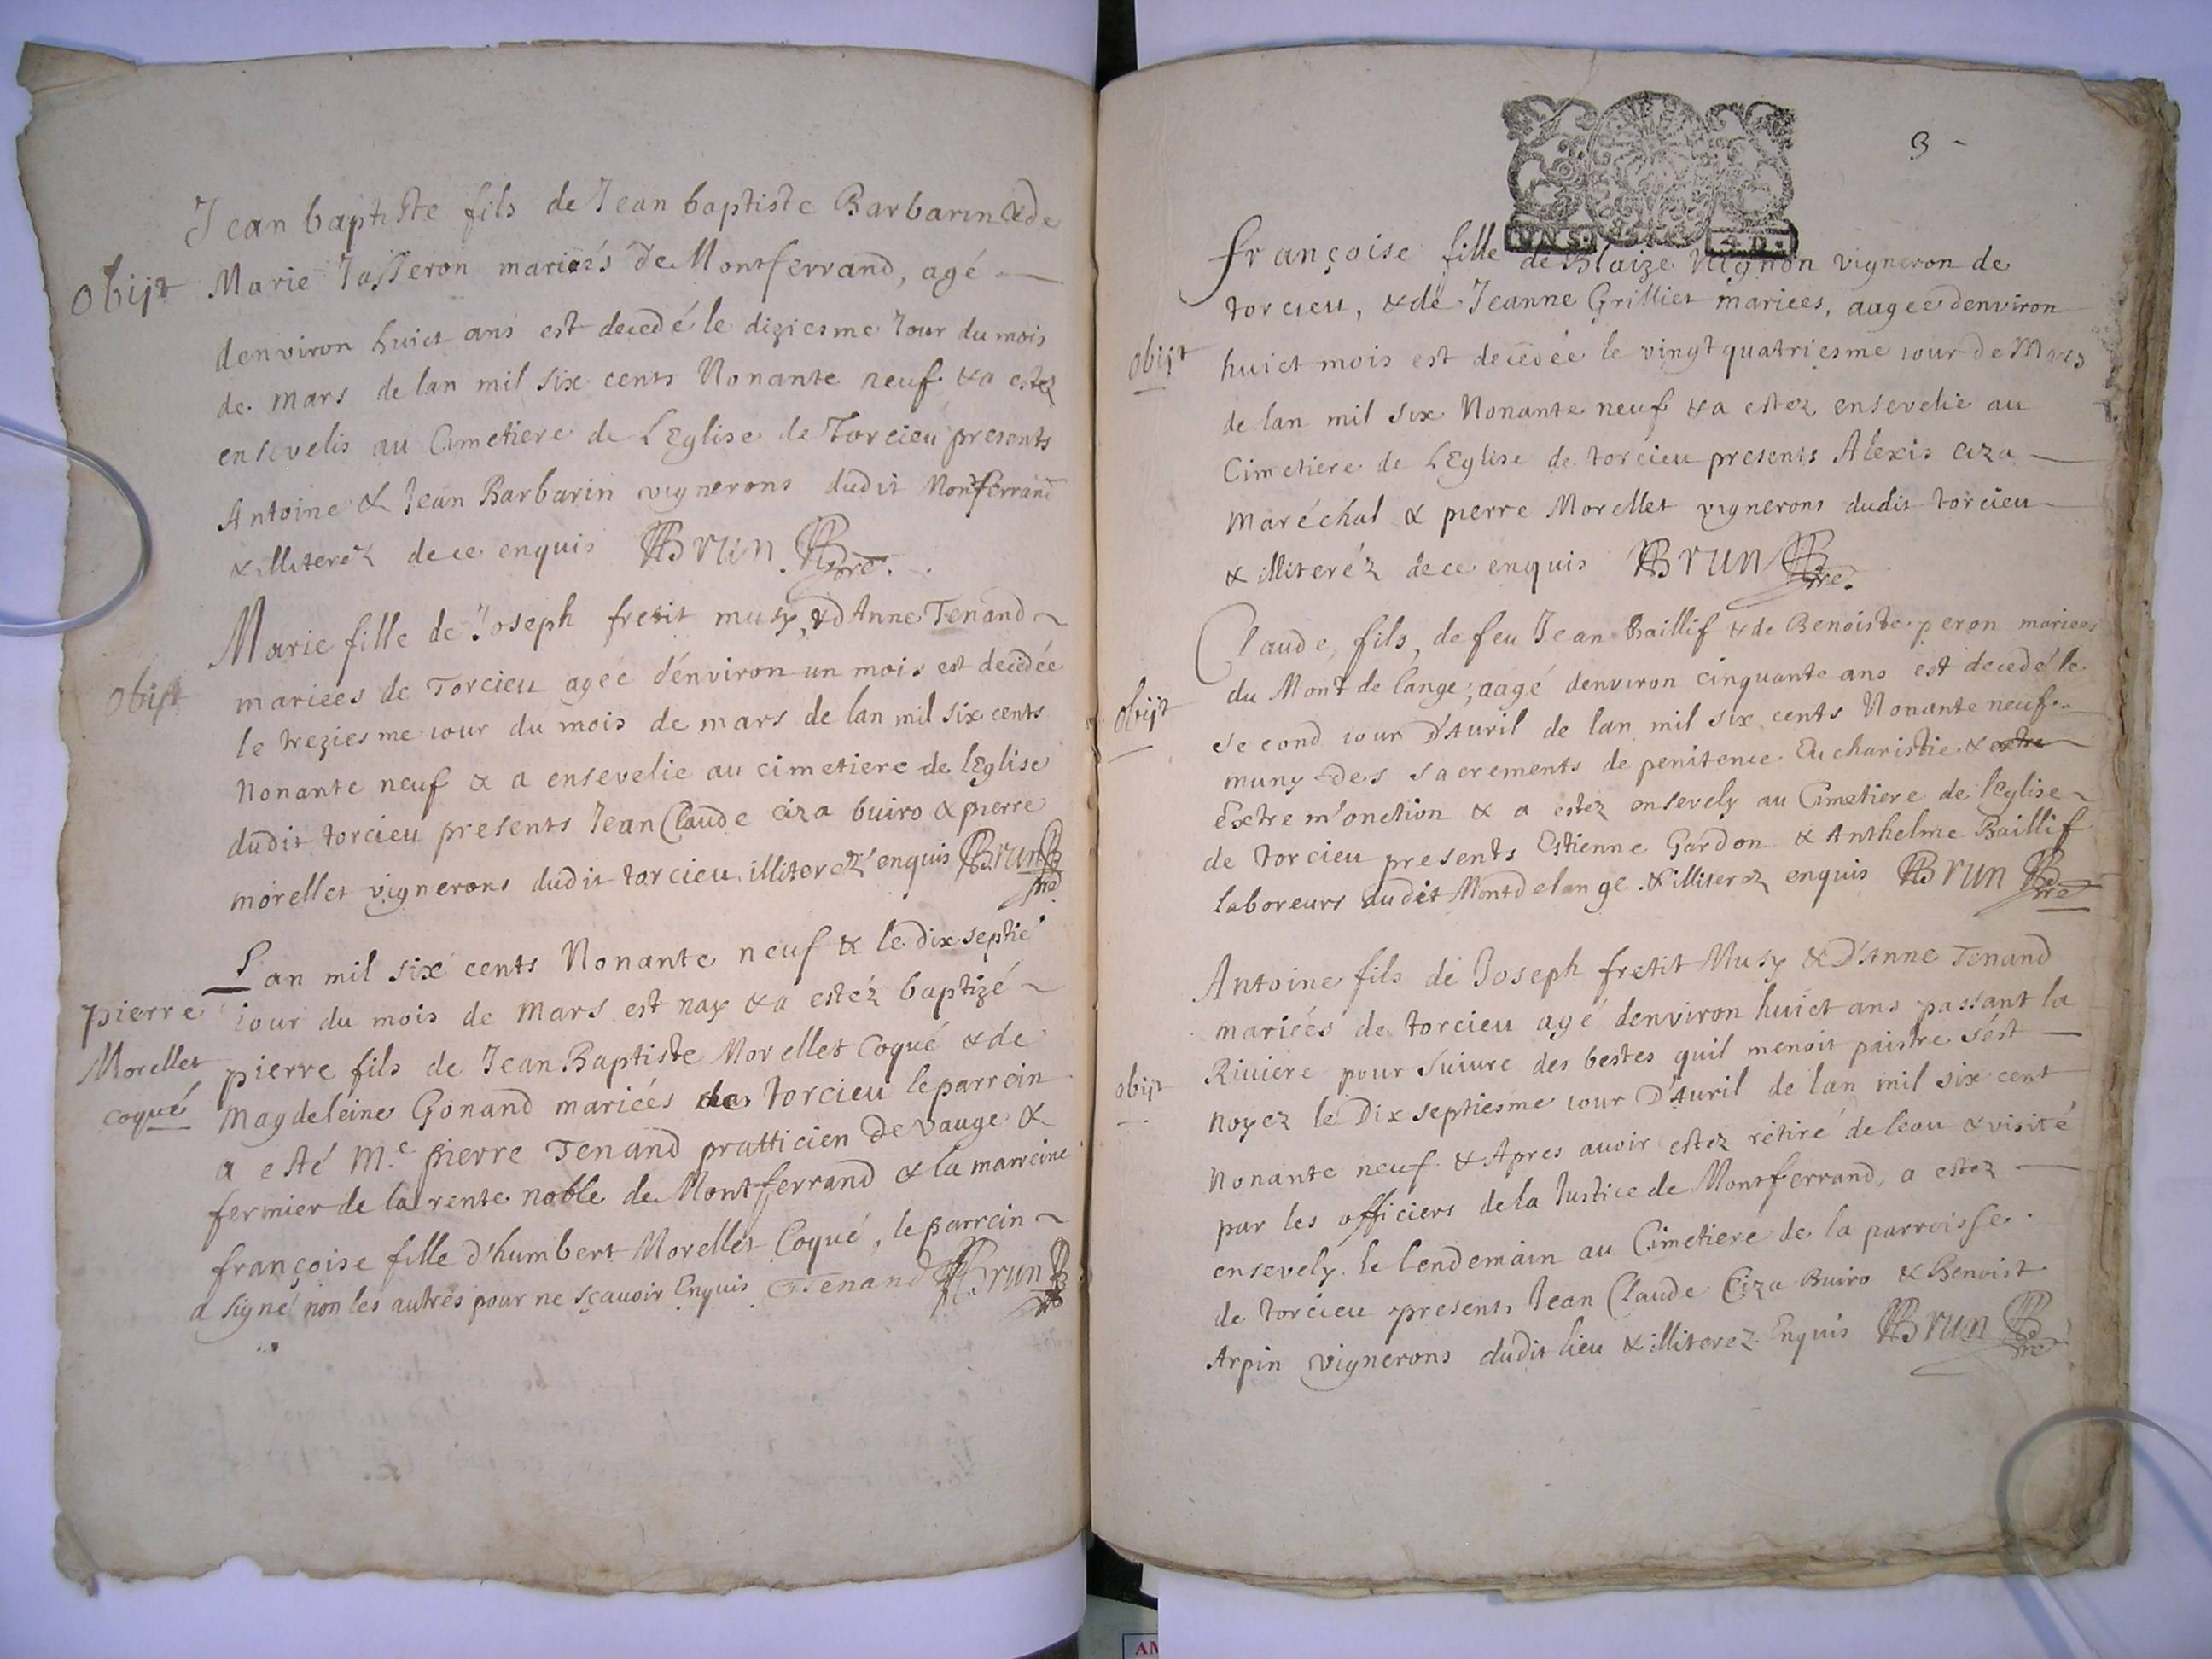 Jean baptiste fils de Jean baptiste Barbarin & de
obijt Marie Jasseron mariés de Montferrand, agé
denviron huict ans est decedé le diziesme Jour du mois
de mars de lan mil six cents Nonante neuf & a estez
ensevelis au Cimetiere de LEglise de Torcieu presents
Antoine & Jean Barbarin vignerons dudit Montferrand
& illiterez de ce enquis Brun pre.
Marie fille de Joseph fretit musy, & d Anne Tenand
obijt mariees de Torcieu agée d'environ un mois est decedée
le treziesme iour du mois de mars de lan mil six cents
Nonante neuf & a ensevelie au cimetiere de lEglise
dudit torcieu presents Jean Claude ciza buiro & pierre
morellet vignerons dudit torcieu illiterez enquis Brun pre
Lan mil six cents Nonante neuf & le dix septie
pierre iour du mois de Mars est nay & a estéz baptizé
Morellet pierre fils de Jean Baptiste Morellet Coqué & de
coqué Magdeleine Gonand mariées de torcieu le parrein
a esté Me. pierre Tenand pratticien de vauge &
fermier de la rente noble de Montferrand & la marreine
françoise fille d'humbert Morellet Coqué, le parrein
a signé non les autres pour ne sçauoir Enquis Tenand Brun
3
françoise fille de Blaize vignon vigneron de
torcieu, & de Jeanne Grilliet mariees, aagee denviron
obijt huict mois est decedée le vingt quatriesme iour de Mars
de lan mil six Nonante neuf & a estez ensevelie au
Cimetiere de LEglise de torcieu presents Alexis ciza
Maréchal & pierre Morellet vignerons dudit torcieu
& illiteréz de ce enquis Brun pre.
Claude, fils, de feu Jean Baillif & de Benoiste peron mariees
du Mont de lange, aagé denviron cinquante ans est decedé le
obijt second iour D'Auril de lan mil six cents Nonante neuf
muny des sacrements de penitence Eucharistie & extre
Extrem'onction & a estez ensevely au Cimetiere de lEglise
de torcieu presents Estienne Gardon & Anthelme Baillif
laboreurs dudit Montdelange & illiterez enquis Brun pre
Antoine fils de Joseph fretit Musy & D'Anne Tenand
mariées de torcieu agé denviron huict ans passant la
Riuiere pour suiure des bestes quil menoit paistre s'est
obijt noyez le Dix septiesme iour D'Auril de lan mil six cent
Nonante neuf & Apres auoir estez rétiré de leau & visité
par les officiers de la Justice de Montferrand, a estez
ensevely le lendemain au Cimetiere de la parroisse
de torcieu presents Jean Claude Ciza Buiro & Benoist
Arpin vignerons dudit lieu & illiterez Enquis Brun pre